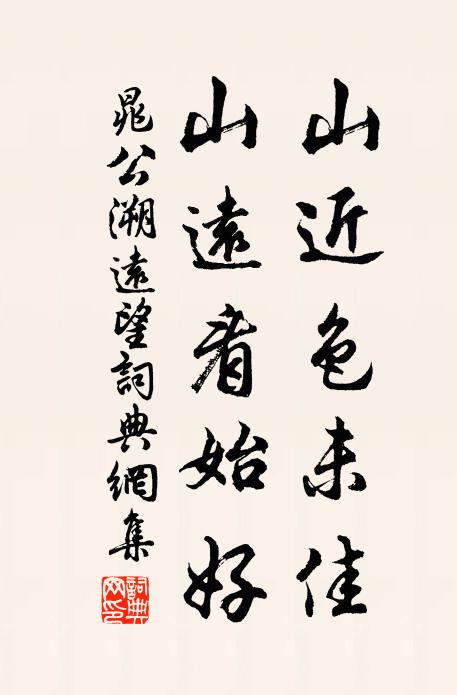 山近色未佳
山遠看始好
晁公溯遠望詞典網集
詞典網印